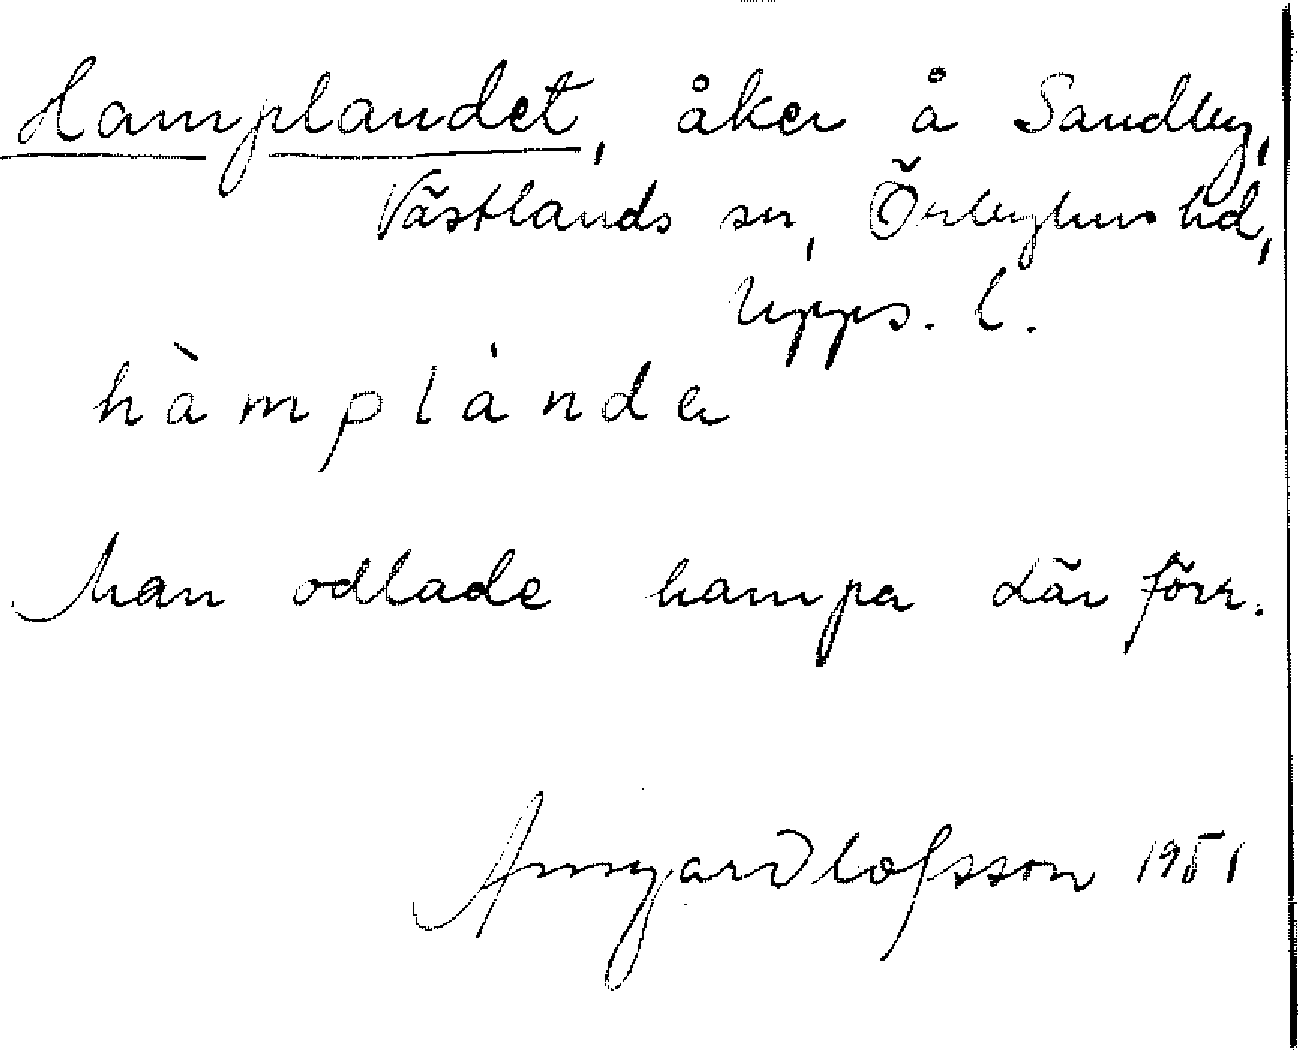 Hamplandet, åker å Sandby,
Västlands sn, Örbyhus hd,
Upps. l.
hàmplánda
Man odlade hampa där förr.
Olofsson 1951